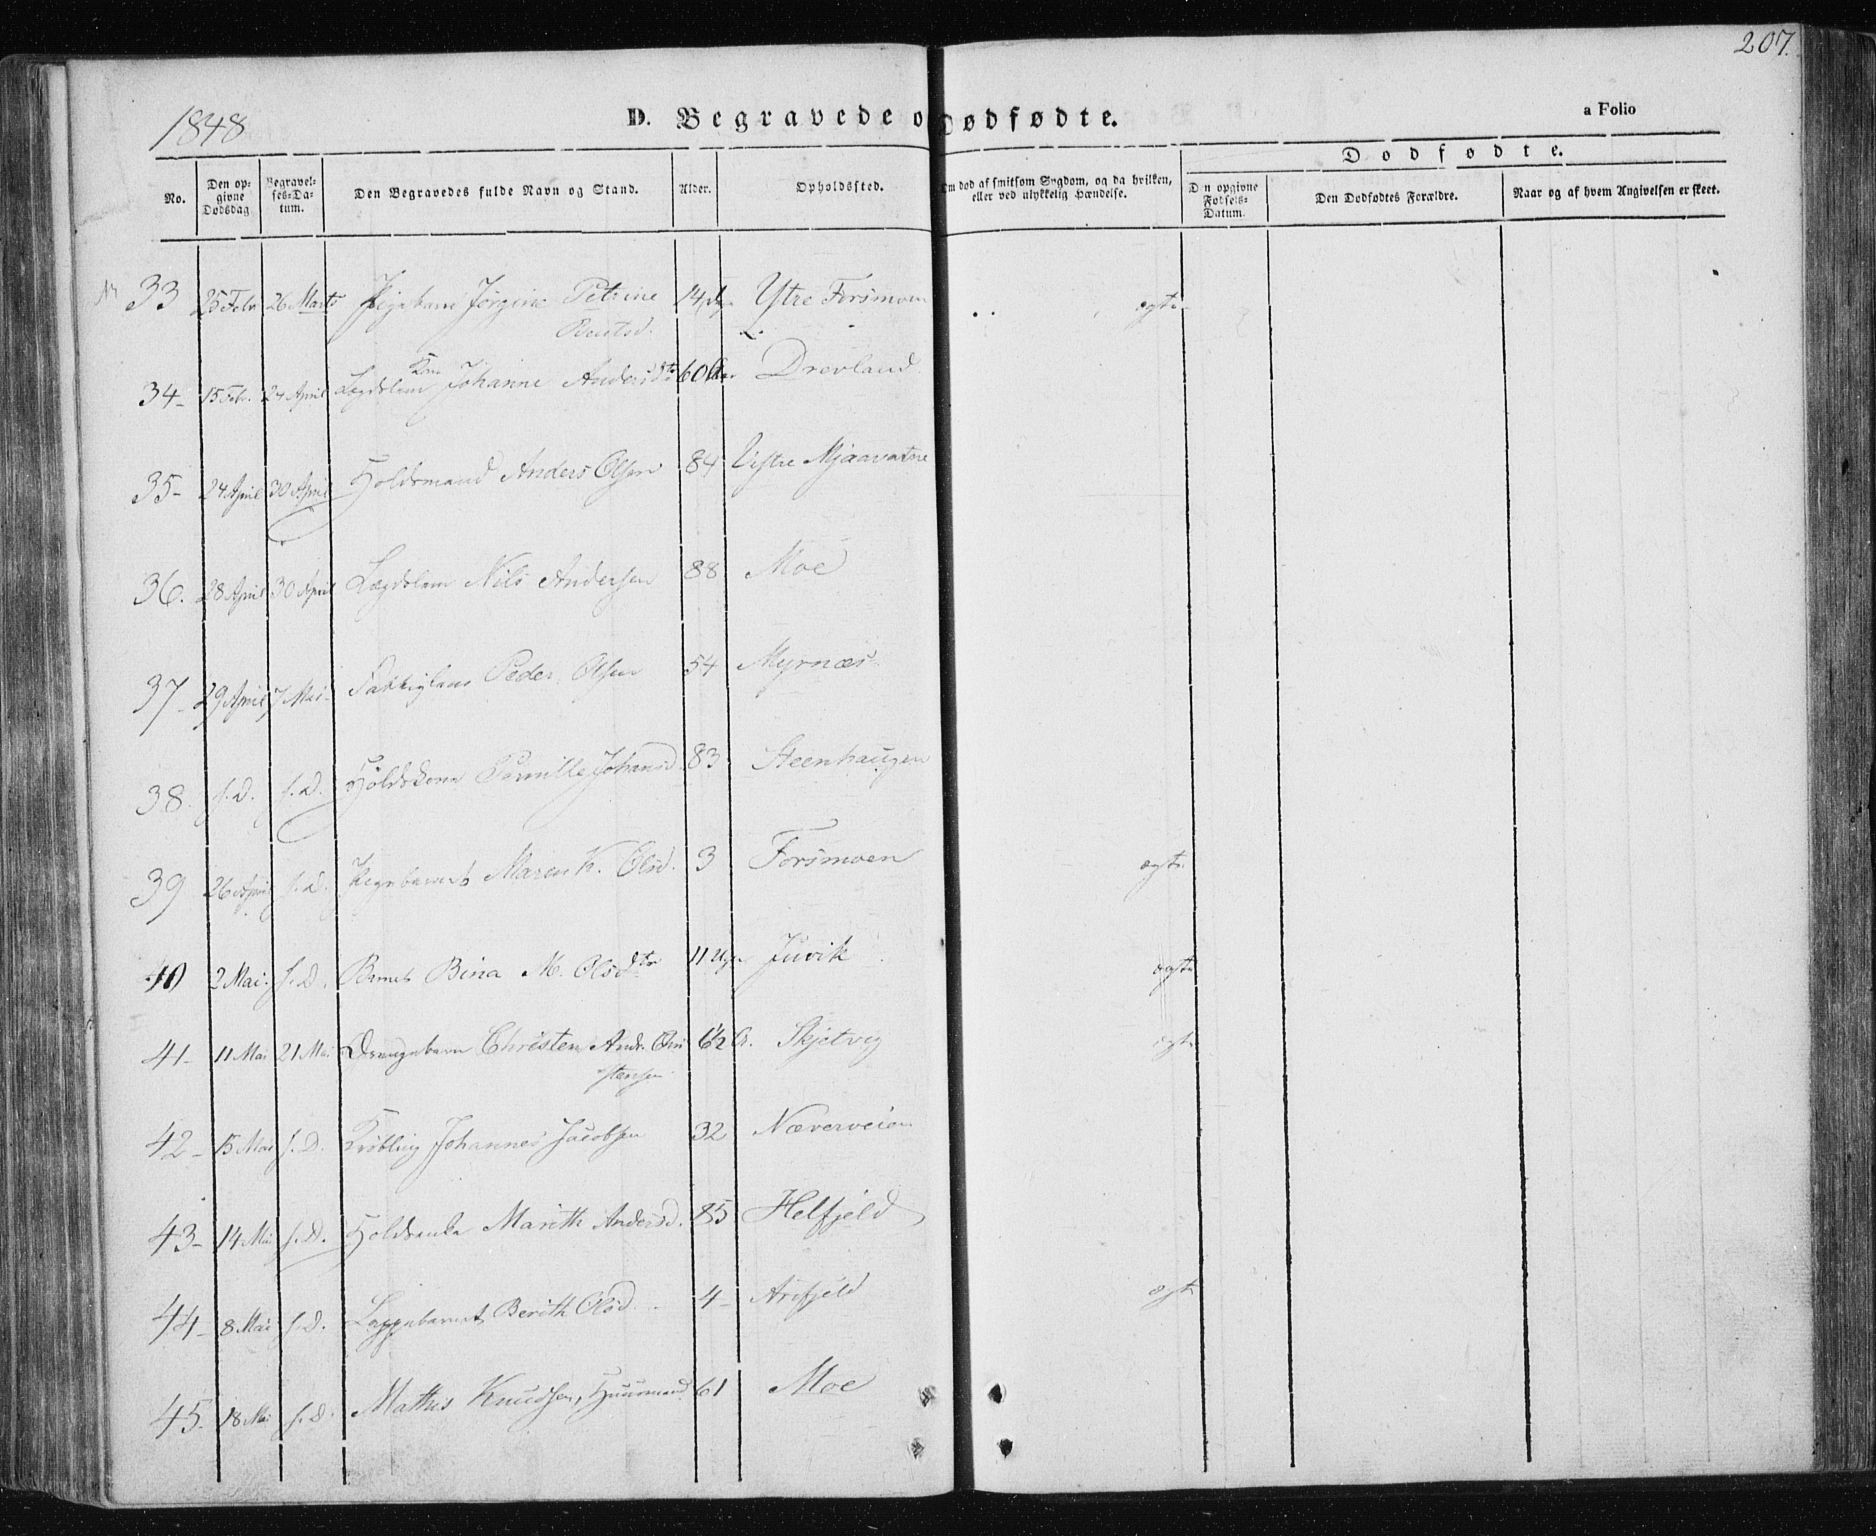 207.
1848
D. Begravede o Dødfødte.
a Folio
Dødfødte.
No.
Den opgivne Dødsdag.
Begravelses-Datum.
Den Begravedes fulde Navn og Stand.
Alder.
Opholdssted.
Om død af smitsom Sygdom, og da hvilken, eller ved ulykkelig Hændelse.
Den opgivne Fødsels-Datum.
Den Dødfødtes Forældre.
Naar og af hvem Angivelsen er skeet.
33 25 Febr 26 Marts Pigebarn Jørgine Petrine 14 Ytre Forsmoen ægte
Bentsd.
34- 15 Febr. 24 April Lægdslem Kone Johanne Andersdtr 60 Aar Drevland
35- 24 April 30 April Holdsmand Anders Olsen 84 Vestre Mjaavatne
36. 28 April 30 April Lægdslem Nils Andersen 88 Moe
37- 29 April 7 Mai Fattiglem Peder Olsen 54 Myrnæs
38. s.d. s.d. Holdskone Pernille Johansd. 83 Steenhaugen
39 26 April s.d. Pigebarnet Maren K. Olsd. 3 Forsmoen ægte
40 2 Mai. s.D. Barnet Bina M. Olsdtr 11 Uger Juvik ægte
41- 11 Mai 21 Mai Drengebarn Christen Andr. Chri 6½ A. Skjetvig ægte
stensen
42- 15 Mai s.D. Krøbling Johannes Jacobsen 32 Næverveien
43- 14 Mai s.D. Holdsenke Marith Andersd. 85 Helfjeld
44- 8 Mai s.D. Lappebarnet Berith Olsd. 4- Arefjeld ægt
45. 18 Mai s.d. Mathis Knudsen, Huusmand 61 Moe